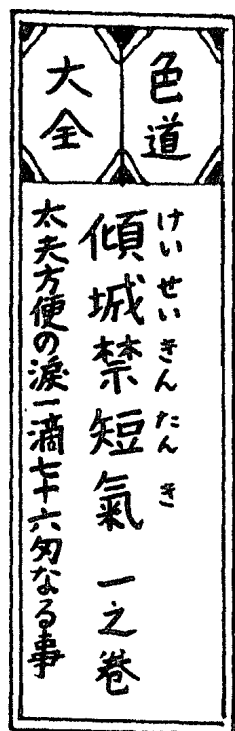 色道
大全
けいせいきんたんき
傾城禁短氣 一之巻
太夫方便の涙一滴七十六匁なる事